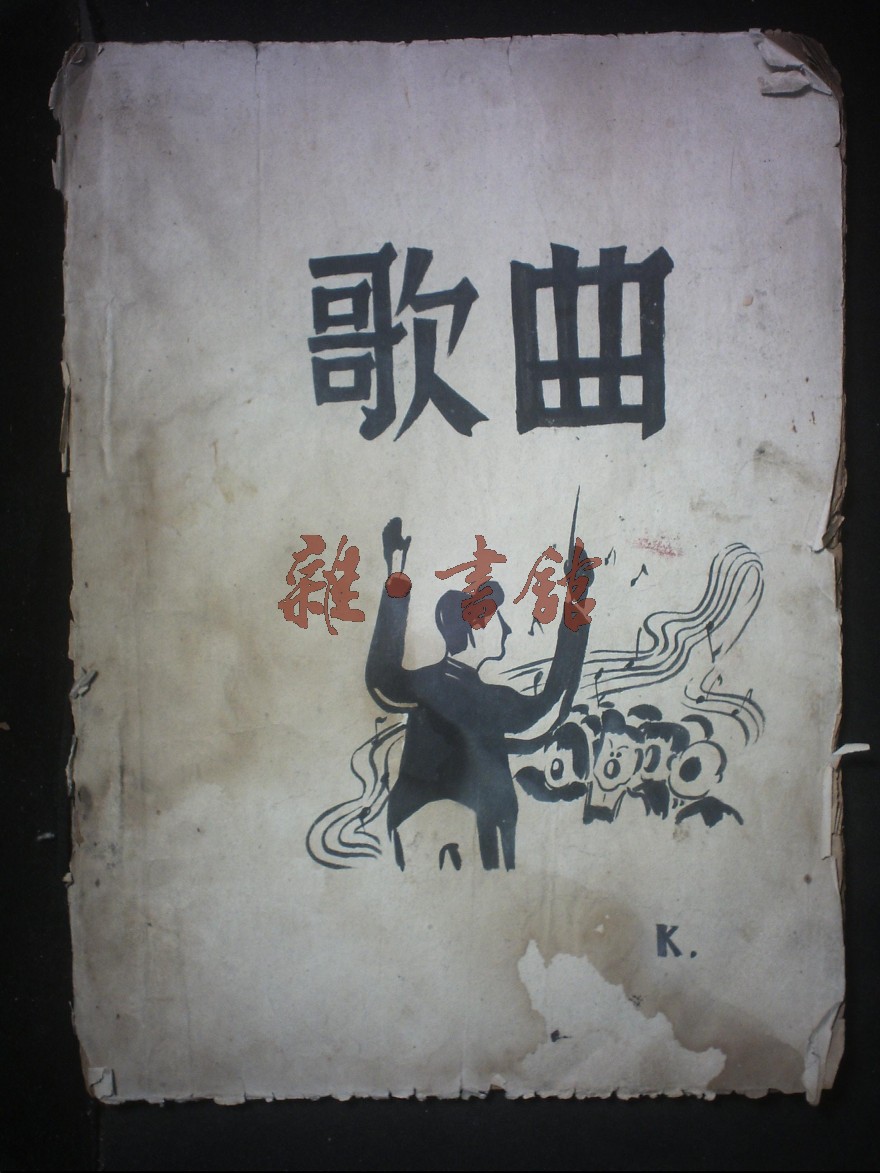 歌曲
雜·書館
K.